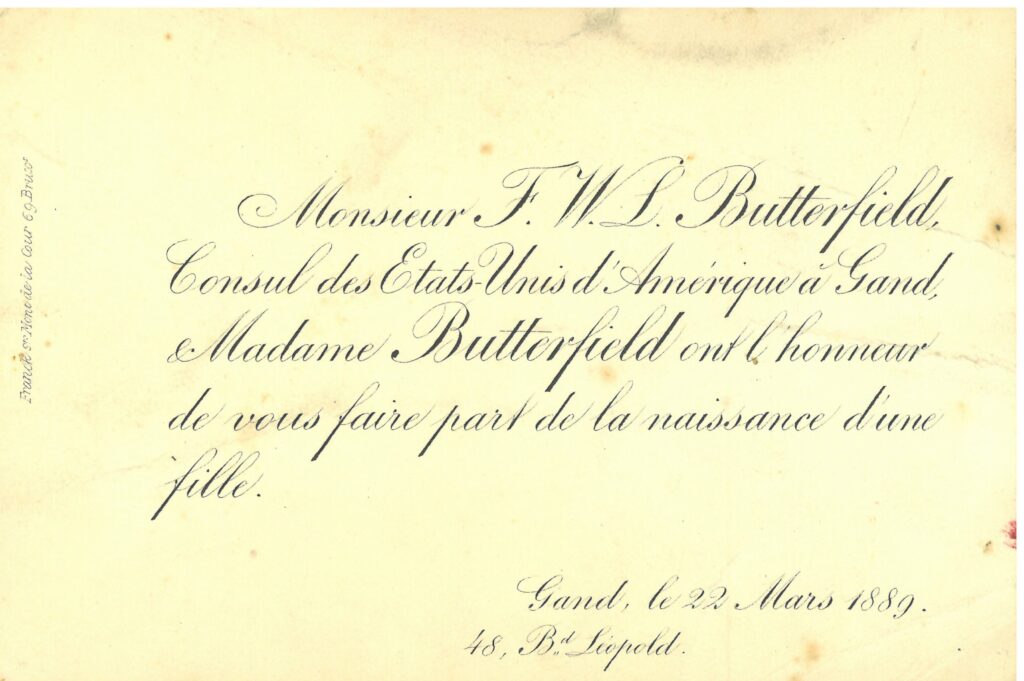 Monsieur F. W. L. Butterfield,
Consul des Etats-Unis d'Amérique à Gand,
Madame Butterfield ont l'honneur
de vous faire part de la naissance d'une
fille.
Gand, le 22 Mars 1889.
48, Bd Léopold.
de la Cour 69 Brux